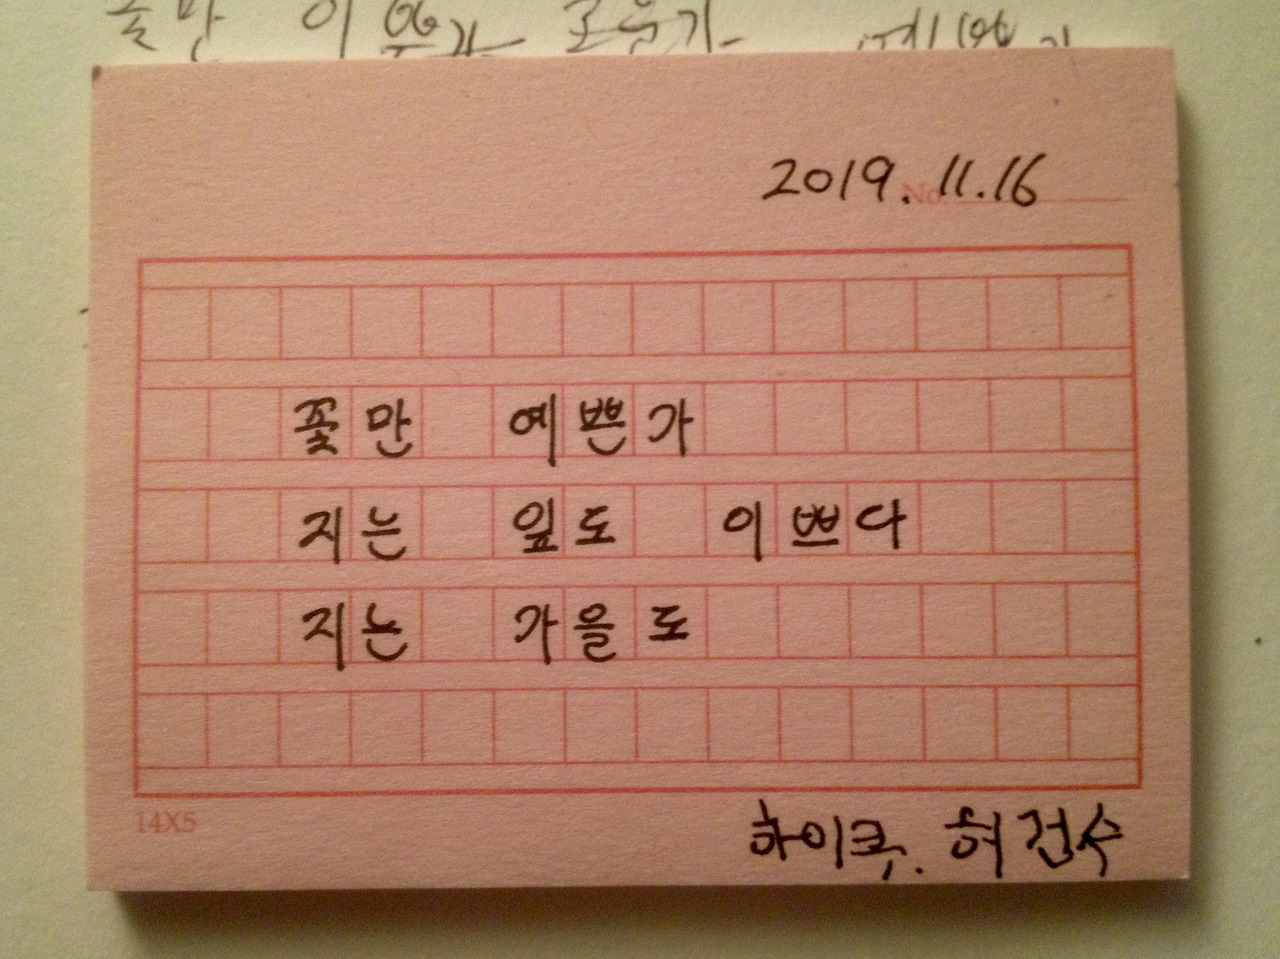 꽃만 이쁜가
2019.11.16
No.
꽃만 예쁜가
지는 잎도 이쁘다
지는 가을도
14X5
하이쿠. 허건수